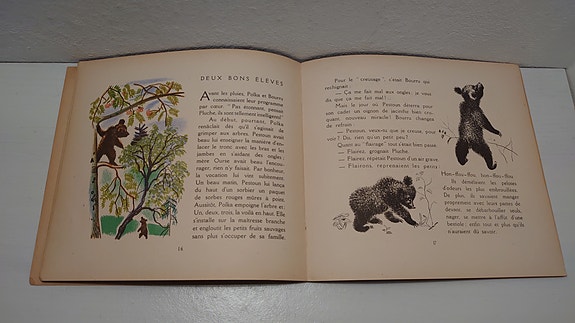 DEUX BONS ÉLÈVES
Avant les pluies, Polka et Bourru
connaissaient leur programme
par cœur. "Pas étonnant, pensait
Pluche, ils sont tellement intelligents!"
Au début, pourtant, Polka
renâclait dès qu'il s'agissait de
grimper aux arbres. Pestoun avait
beau lui enseigner la manière d'en-
lacer le tronc avec les bras et les
jambes en s'aidant des ongles;
mère Ourse avait beau l'encou-
rager, rien n'y faisait. Par bonheur,
la vocation lui vint subitement.
Un beau matin, Pestoun lui montra
du haut d'un sorbier un paquet
de sorbes rouges mûres à point.
Aussitôt, Polka empoigne l'arbre et:
Un, deux, trois, la voilà en haut. Elle
s'installe sur la maîtresse branche
et engloutit les petits fruits sauvages
sans plus s'occuper de sa famille.
16
Pour le "creusage", c'était Bourru qui
rechignait:
— Ça me fait mal aux ongles; je vous
dis que ça me fait mal!
Mais le jour où Pestoun déterra pour
son cadet un scarabée brun, luisant, bien
croquant, nouveau miracle! Bourru changea
de refrain:
— Pestoun, veux-tu que je creuse, pour
voir? Dis, rien qu'un petit peu?
Quant au "flairage" tout s'était bien passé.
— Flairez, grognait Pluche.
— Flairez, répétait Pestoun d'un air grave.
— Flairons, reprenaient les petits.
Hon-flou-flou, hon-flou-flou.
Ils démêlaient les pelotes
d'odeurs les plus embrouillées.
De plus, ils savaient manger
proprement avec leurs pattes de
devant, se débarbouiller seuls,
nager, se mettre à l'affût d'une
bestiole; enfin tout et plus qu'ils
n'auraient dû savoir.